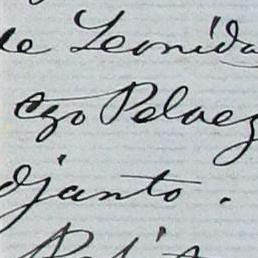 de Leonida
ezo Pelaez
djanto.